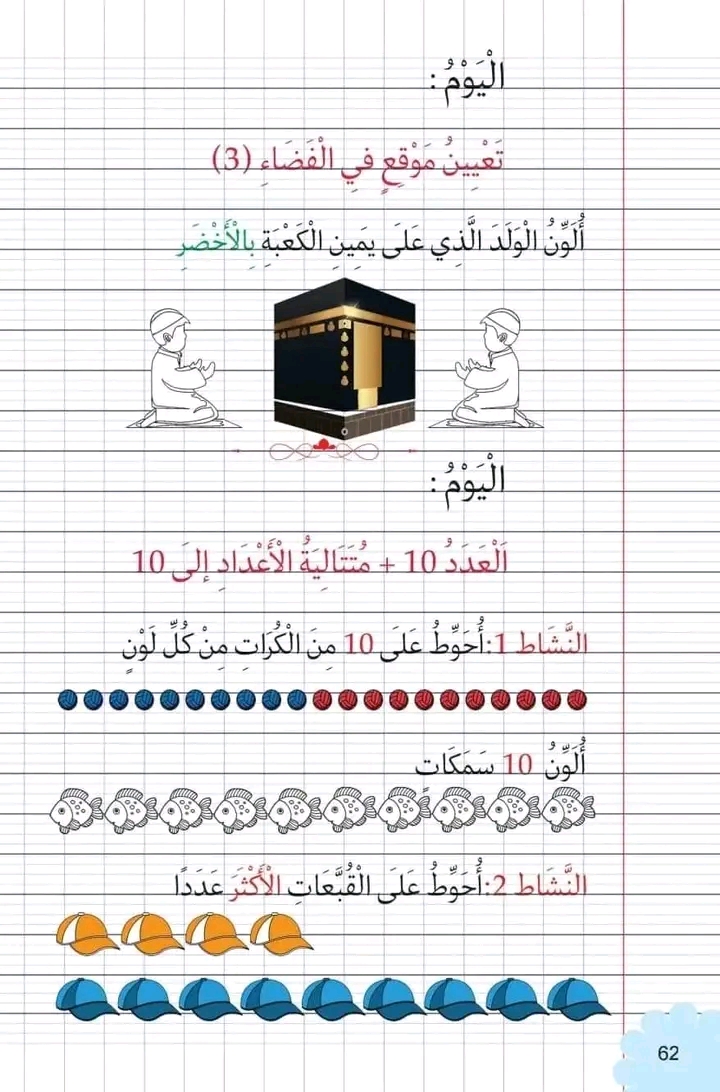 الْيَوْمُ :
تَعْيِينُ مَوْقِعٍ فِي الْفَضَاءِ (3)
أُلَوِّنُ الْوَلَدَ الَّذِي عَلَى يَمِينِ الْكَعْبَةِ بِالْأَخْضَرِ
الْيَوْمُ :
اَلْعَدَدُ 10 + مُتَتَالِيَةُ الْأَعْدَادِ إلَى 10
النَّشَاط 1:أُحَوِّطُ عَلَى 10 مِنَ الْكُرَاتِ مِنْ كُلِّ لَوْنٍ
أُلَوِّنُ 10 سَمَكَاتٍ
النَّشَاط 2:أُحَوِّطُ عَلَى الْقُبَّعَاتِ الْأَكْثَرَ عَدَدًا
62